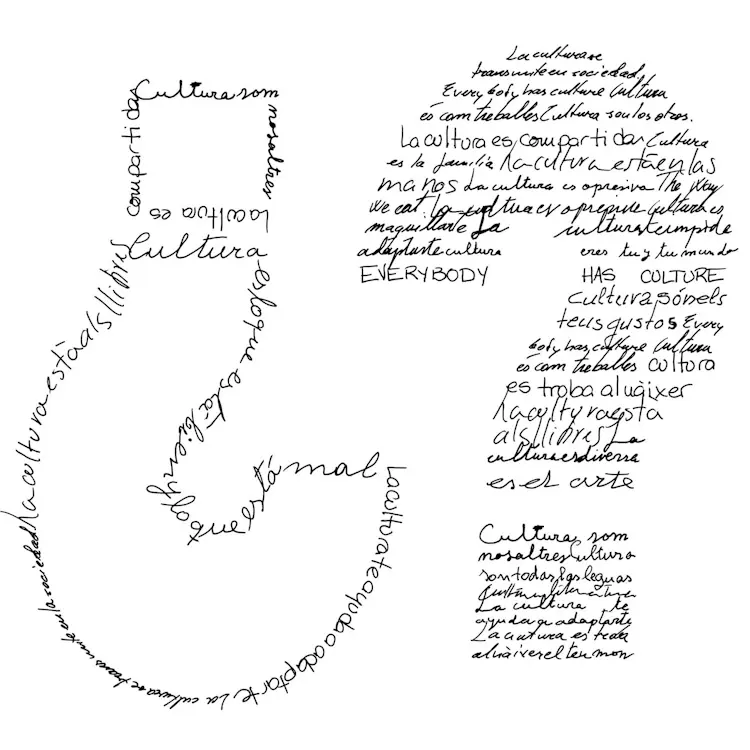 Cultura som
nosaltres
La cultura es
compartida
Cultura
es lo que esta bien y lo
que está mal
La cultura te ayuda a adaptarte La cultura se transmite en la sociedad La cultura està als llibres
La cultura se
transmite en sociedad.
Everybody has culture Cultura
és com treballes Cultura son los otros.
La cultura es compartida Cultura
es la familia La cultura está en las
manos La cultura es opresiva The way
we eat. La cultura es opresive Cultura es
maquillarte La cultura te impide
adaptarte cultura eres tu y tu mundo
EVERYBODY HAS CULTURE
Cultura són els
teus gustos Every
body has culture Cultura
és com treballes cultura
es troba al uàixer
La cultura esta
als llibres La
cultura es diversa
es el arte
Cultura som
nosaltres Cultura
son todas las leguas
Cultura literatura
La cultura te
ayuda a adaptarte
La cultura es troba
al uàixer el teu mon